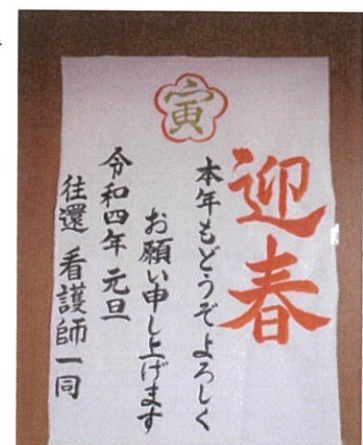 寅
迎春
本年もどうぞよろしく
お願い申し上げます
令和四年 元旦
往還 看護師一同